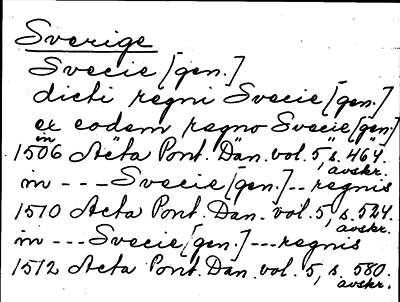 Sverige
Svecie [gen.]
dicti regni Svecie [gen.]
ex eodem regno Svecie [gen.]
in
1506 Acta Pont. Dan. vol. 5, s. 464.
avskr.
in - - - Svecie [gen.] - - regnis
1510 Acta Pont. Dan. vol. 5, s. 524.
avskr.
in - - - Svecie [gen.] - - - regnis
1512 Acta Pont. Dan. vol. 5, s. 580.
avskr.